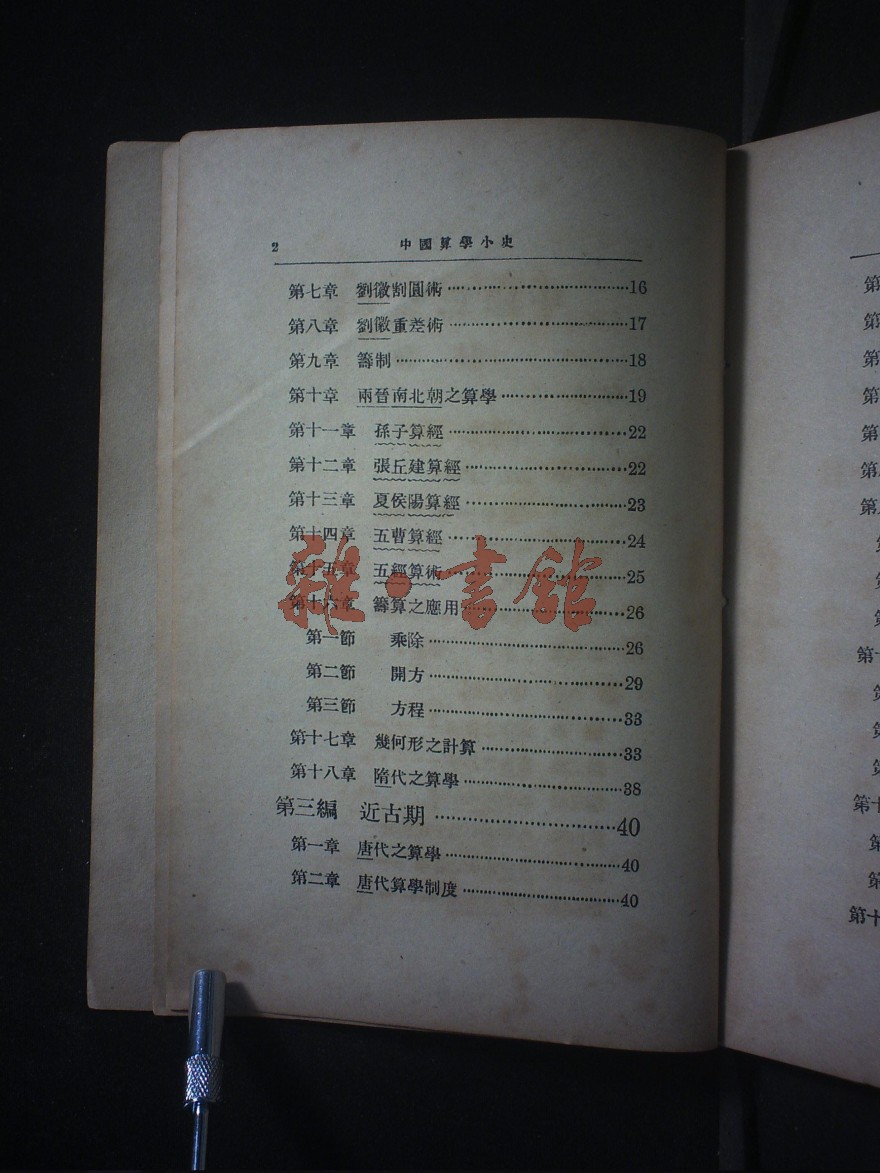 2 中國算學小史
第七章 劉徽割圓術 16
第八章 劉徽重差術 17
第九章 籌制 18
第十章 兩晉南北朝之算學 19
第十一章 孫子算經 22
第十二章 張丘建算經 22
第十三章 夏侯陽算經 23
第十四章 五曹算經 24
第十五章 五經算術 25
第十六章 籌算之應用 26
第一節 乘除 26
第二節 開方 29
第三節 方程 33
第十七章 幾何形之計算 33
第十八章 隋代之算學 38
第三編 近古期 40
第一章 唐代之算學 40
第二章 唐代算學制度 40
雜·書館